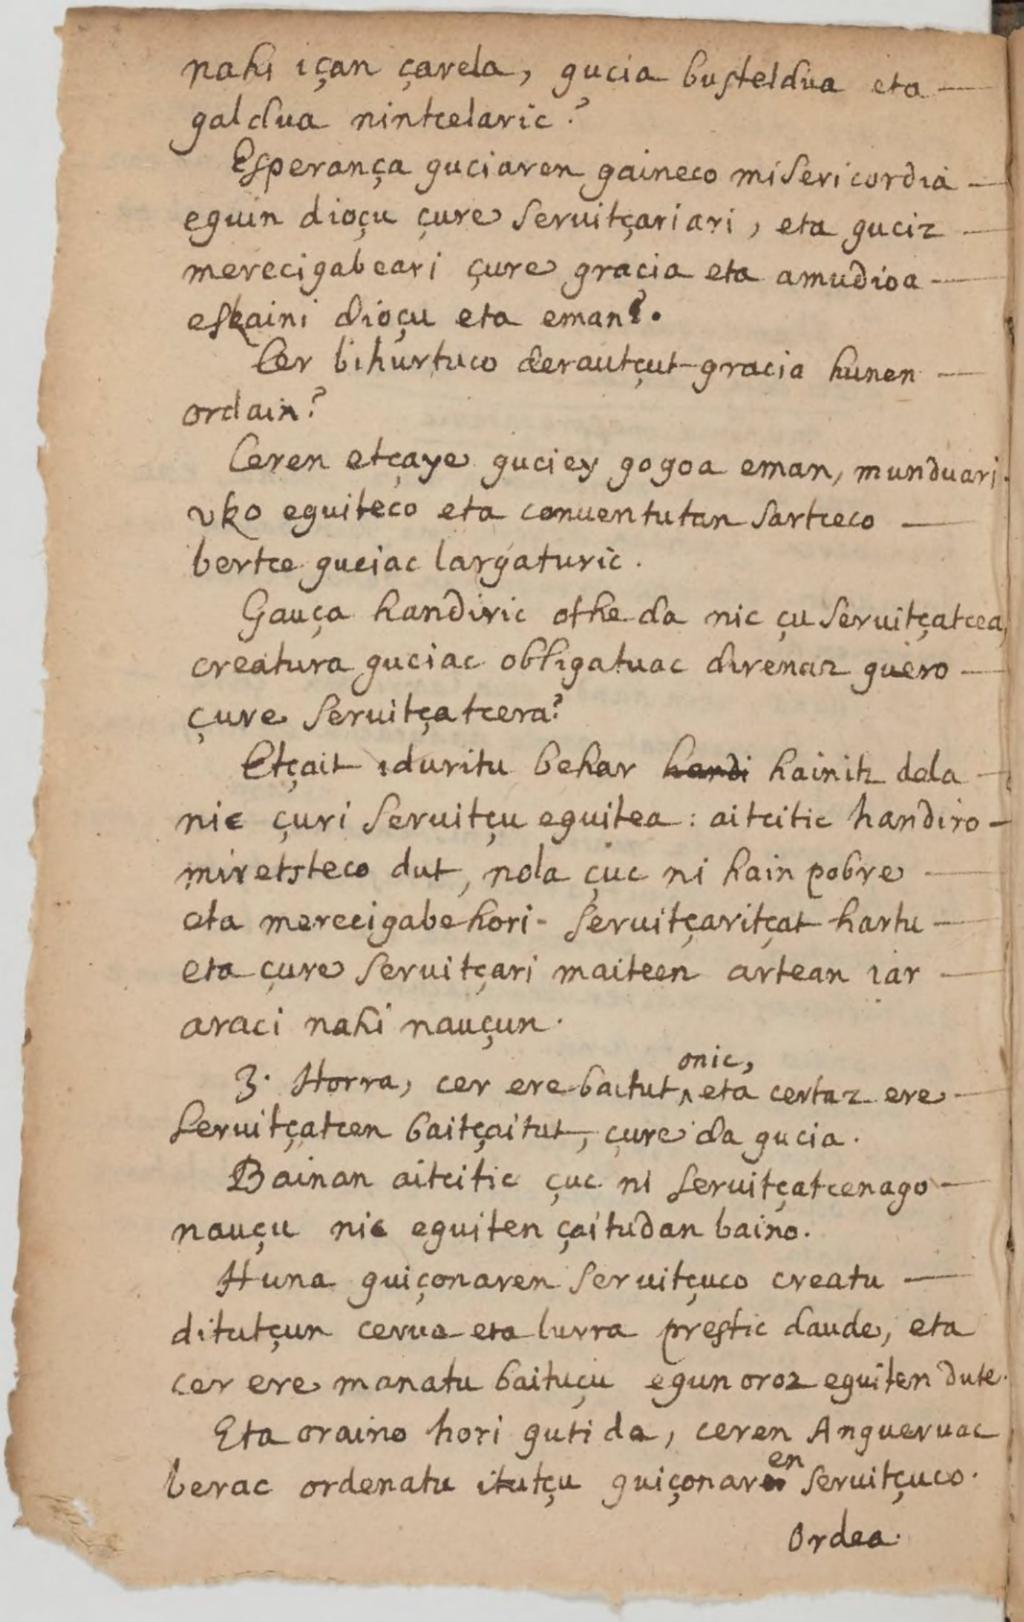 nahi içan çarela, gucia busteldua eta —
galdua nintcelaric?
Esperança guciaren gaineco misericordia —
eguin dioçu çure seruitçariari, eta guciz —
merecigabeari çure gracia eta amudioa —
eskaini dioçu eta eman?.
Cer bihurtuco derautçut gracia hunen —
ordain?
Ceren etçaye guciey gogoa eman, munduari
vko eguiteco eta conuentutan sartceco —
bertce guciac largaturic.
Gauça handiric othe da nic çu seruitçatcea,
creatura guciac obligatuac direnaz guero —
çure seruitçatcera?
Etçait iduritu behar handi hainitz dela —
nic çuri seruitçu eguitea: aitcitic handiro —
miretsteco dut, nola çuc ni hain pobre —
eta merecigabe hori- seruitçaritçat hartu —
eta çure seruitçari maiteen artean iar —
araci nahi nauçun.
3. Horra, cer ere baitut onic, eta certaz ere —
seruitçatcen baitçaitut, çure da gucia.
Bainan aitcitic çuc ni seruitçatcenago —
nauçu nic eguiten çaitudan baino.
Huna guiçonaren seruitçuco creatu —
ditutçun cerua eta lurra prestic daude, eta
cer ere manatu baituçu egun oroz eguiten dute.
Eta oraino hori guti da, ceren Angueruac
berac ordenatu itutçu guiçonaren seruitçuco.
Ordea.